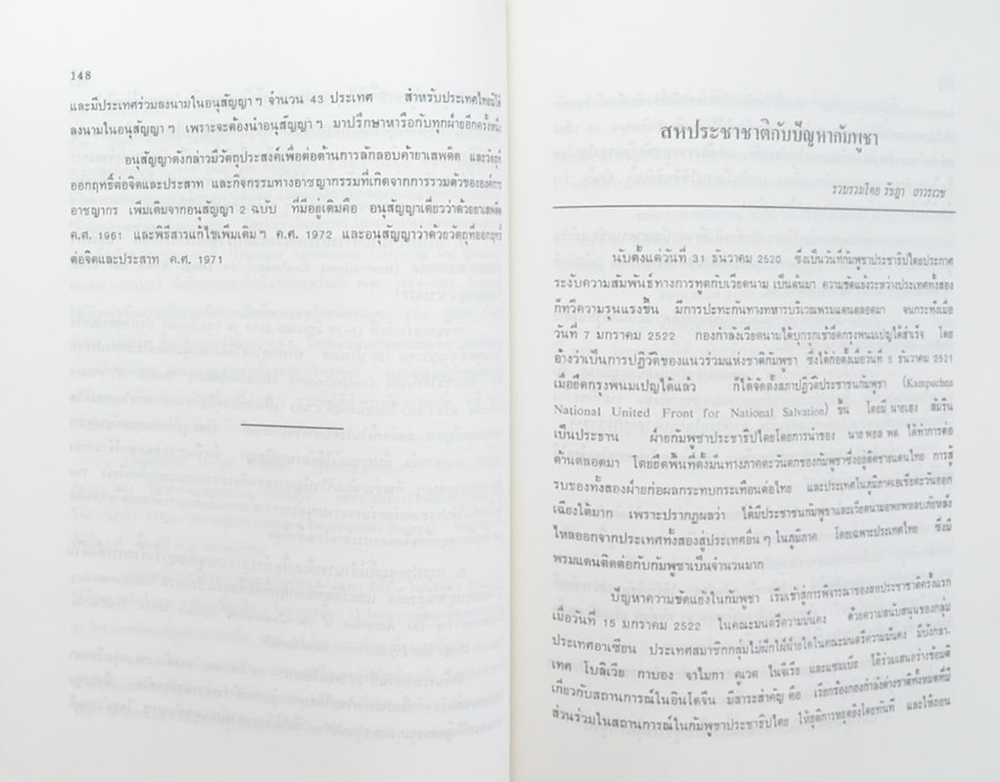 148
และมีประเทศร่วมลงนามในอนุสัญญา ฯ จำนวน 43 ประเทศ สำหรับประเทศไทยมิได้
ลงนามในอนุสัญญา ฯ เพราะจะต้องนำอนุสัญญา ฯ มาปรึกษาหารือกับทุกฝ่ายอีกครั้งหนึ่ง
อนุสัญญาดังกล่าวมีวัตถุประสงค์เพื่อต่อต้านการลักลอบค้ายาเสพติด และวัตถุที่
ออกฤทธิ์ต่อจิตและประสาท และกิจกรรมทางอาชญากรรมที่เกิดจากการรวมตัวขององค์กร
อาชญากร เพิ่มเติมจากอนุสัญญา 2 ฉบับ ที่มีอยู่เดิมคือ อนุสัญญาเดี่ยวว่าด้วยยาเสพติด
ค.ศ. 1961 และพิธีสารแก้ไขเพิ่มเติม ฯ ค.ศ. 1972 และอนุสัญญาว่าด้วยวัตถุที่ออกฤทธิ์
ต่อจิตและประสาท ค.ศ. 1971
สหประชาชาติกับปัญหากัมพูชา
รวบรวมโดย รัชฎา ถาวรเวช
นับตั้งแต่วันที่ 31 ธันวาคม 2520 ซึ่งเป็นวันที่กัมพูชาประชาธิปไตยประกาศ
ระงับความสัมพันธ์ทางการทูตกับเวียดนาม เป็นต้นมา ความขัดแย้งระหว่างประเทศทั้งสอง
ก็ทวีความรุนแรงขึ้น มีการปะทะกันทางทหารบริเวณพรมแดนตลอดมา จนกระทั่งเมื่อ
วันที่ 7 มกราคม 2522 กองกำลังเวียดนามได้บุกรุกเข้ายึดกรุงพนมเปญได้สำเร็จ โดย
อ้างว่าเป็นการปฏิวัติของแนวร่วมแห่งชาติกัมพูชา ซึ่งได้ก่อตั้งเมื่อวันที่ 5 ธันวาคม 2521
เมื่อยึดกรุงพนมเปญได้แล้ว ก็ได้จัดตั้งสภาปฏิวัติประชาชนกัมพูชา (Kampuchea
National United Front for National Salvation) ขึ้น โดยมี นายเฮง สัมริน
เป็นประธาน ฝ่ายกัมพูชาประชาธิปไตยโดยการนำของ นาย พอล พต ได้ทำการต่อ
ต้านตลอดมา โดยยึดพื้นที่ตั้งมั่นทางภาคตะวันตกของกัมพูชาซึ่งอยู่ติดชายแดนไทย การสู้
รบของทั้งสองฝ่ายก่อผลกระทบกระเทือนต่อไทย และประเทศในภูมิภาคเอเชียตะวันออก
เฉียงใต้มาก เพราะปรากฏผลว่า ได้มีประชาชนกัมพูชาและเวียดนามอพยพหลบภัยหลั่ง
ไหลออกจากประเทศทั้งสองสู่ประเทศอื่น ๆ ในภูมิภาค โดยเฉพาะประเทศไทย ซึ่งมี
พรมแดนติดต่อกับกัมพูชาเป็นจำนวนมาก
ปัญหาความขัดแย้งในกัมพูชา เริ่มเข้าสู่การพิจารณาของสหประชาชาติครั้งแรก
เมื่อวันที่ 15 มกราคม 2522 ในคณะมนตรีความมั่นคง ด้วยความสนับสนุนของกลุ่ม
ประเทศอาเซียน ประเทศสมาชิกกลุ่มไม่ฝักใฝ่ฝ่ายใดในคณะมนตรีความมั่นคง มีบังกลา-
เทศ โบลิเวีย กาบอง จาไมกา คูเวต ไนจีเรีย และแซมเบีย ได้ร่วมเสนอร่างข้อมติ
เกี่ยวกับสถานการณ์ในอินโดจีน มีสาระสำคัญ คือ เรียกร้องกองกำลังต่างชาติทั้งหมดที่มี
ส่วนร่วมในสถานการณ์ในกัมพูชาประชาธิปไตย ให้ยุติการหยุดยิงโดยทันที และให้ถอน